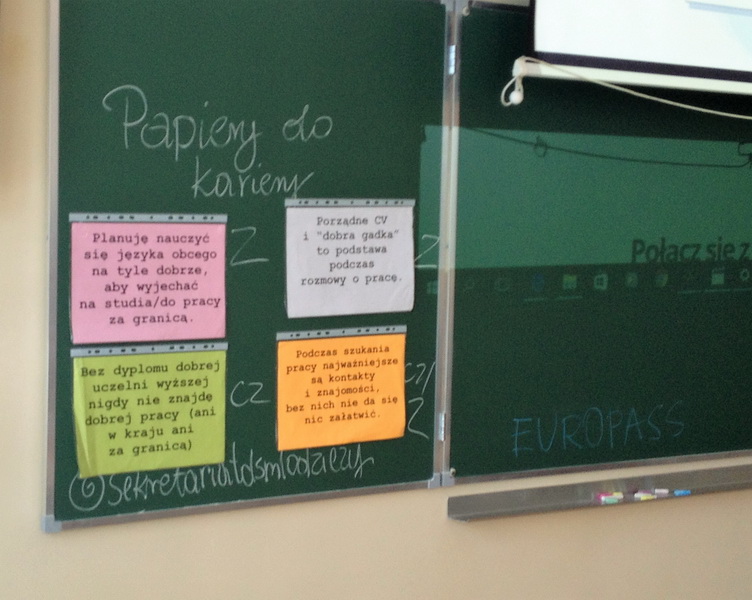 Papiery do
kariery
Planuję nauczyć
się języka obcego
na tyle dobrze,
aby wyjechać
na studia/do pracy
za granicą.
Z
Porządne CV
i "dobra gadka"
to podstawa
podczas
rozmowy o pracę.
Z
Bez dyplomu dobrej
uczelni wyższej
nigdy nie znajdę
dobrej pracy (ani
w kraju ani
za granicą)
CZ
Podczas szukania
pracy najważniejsze
są kontakty
i znajomości,
bez nich nie da się
nic załatwić.
CZ/
Z
@sekretariatdsmlodziezy
Połącz się z
EUROPASS